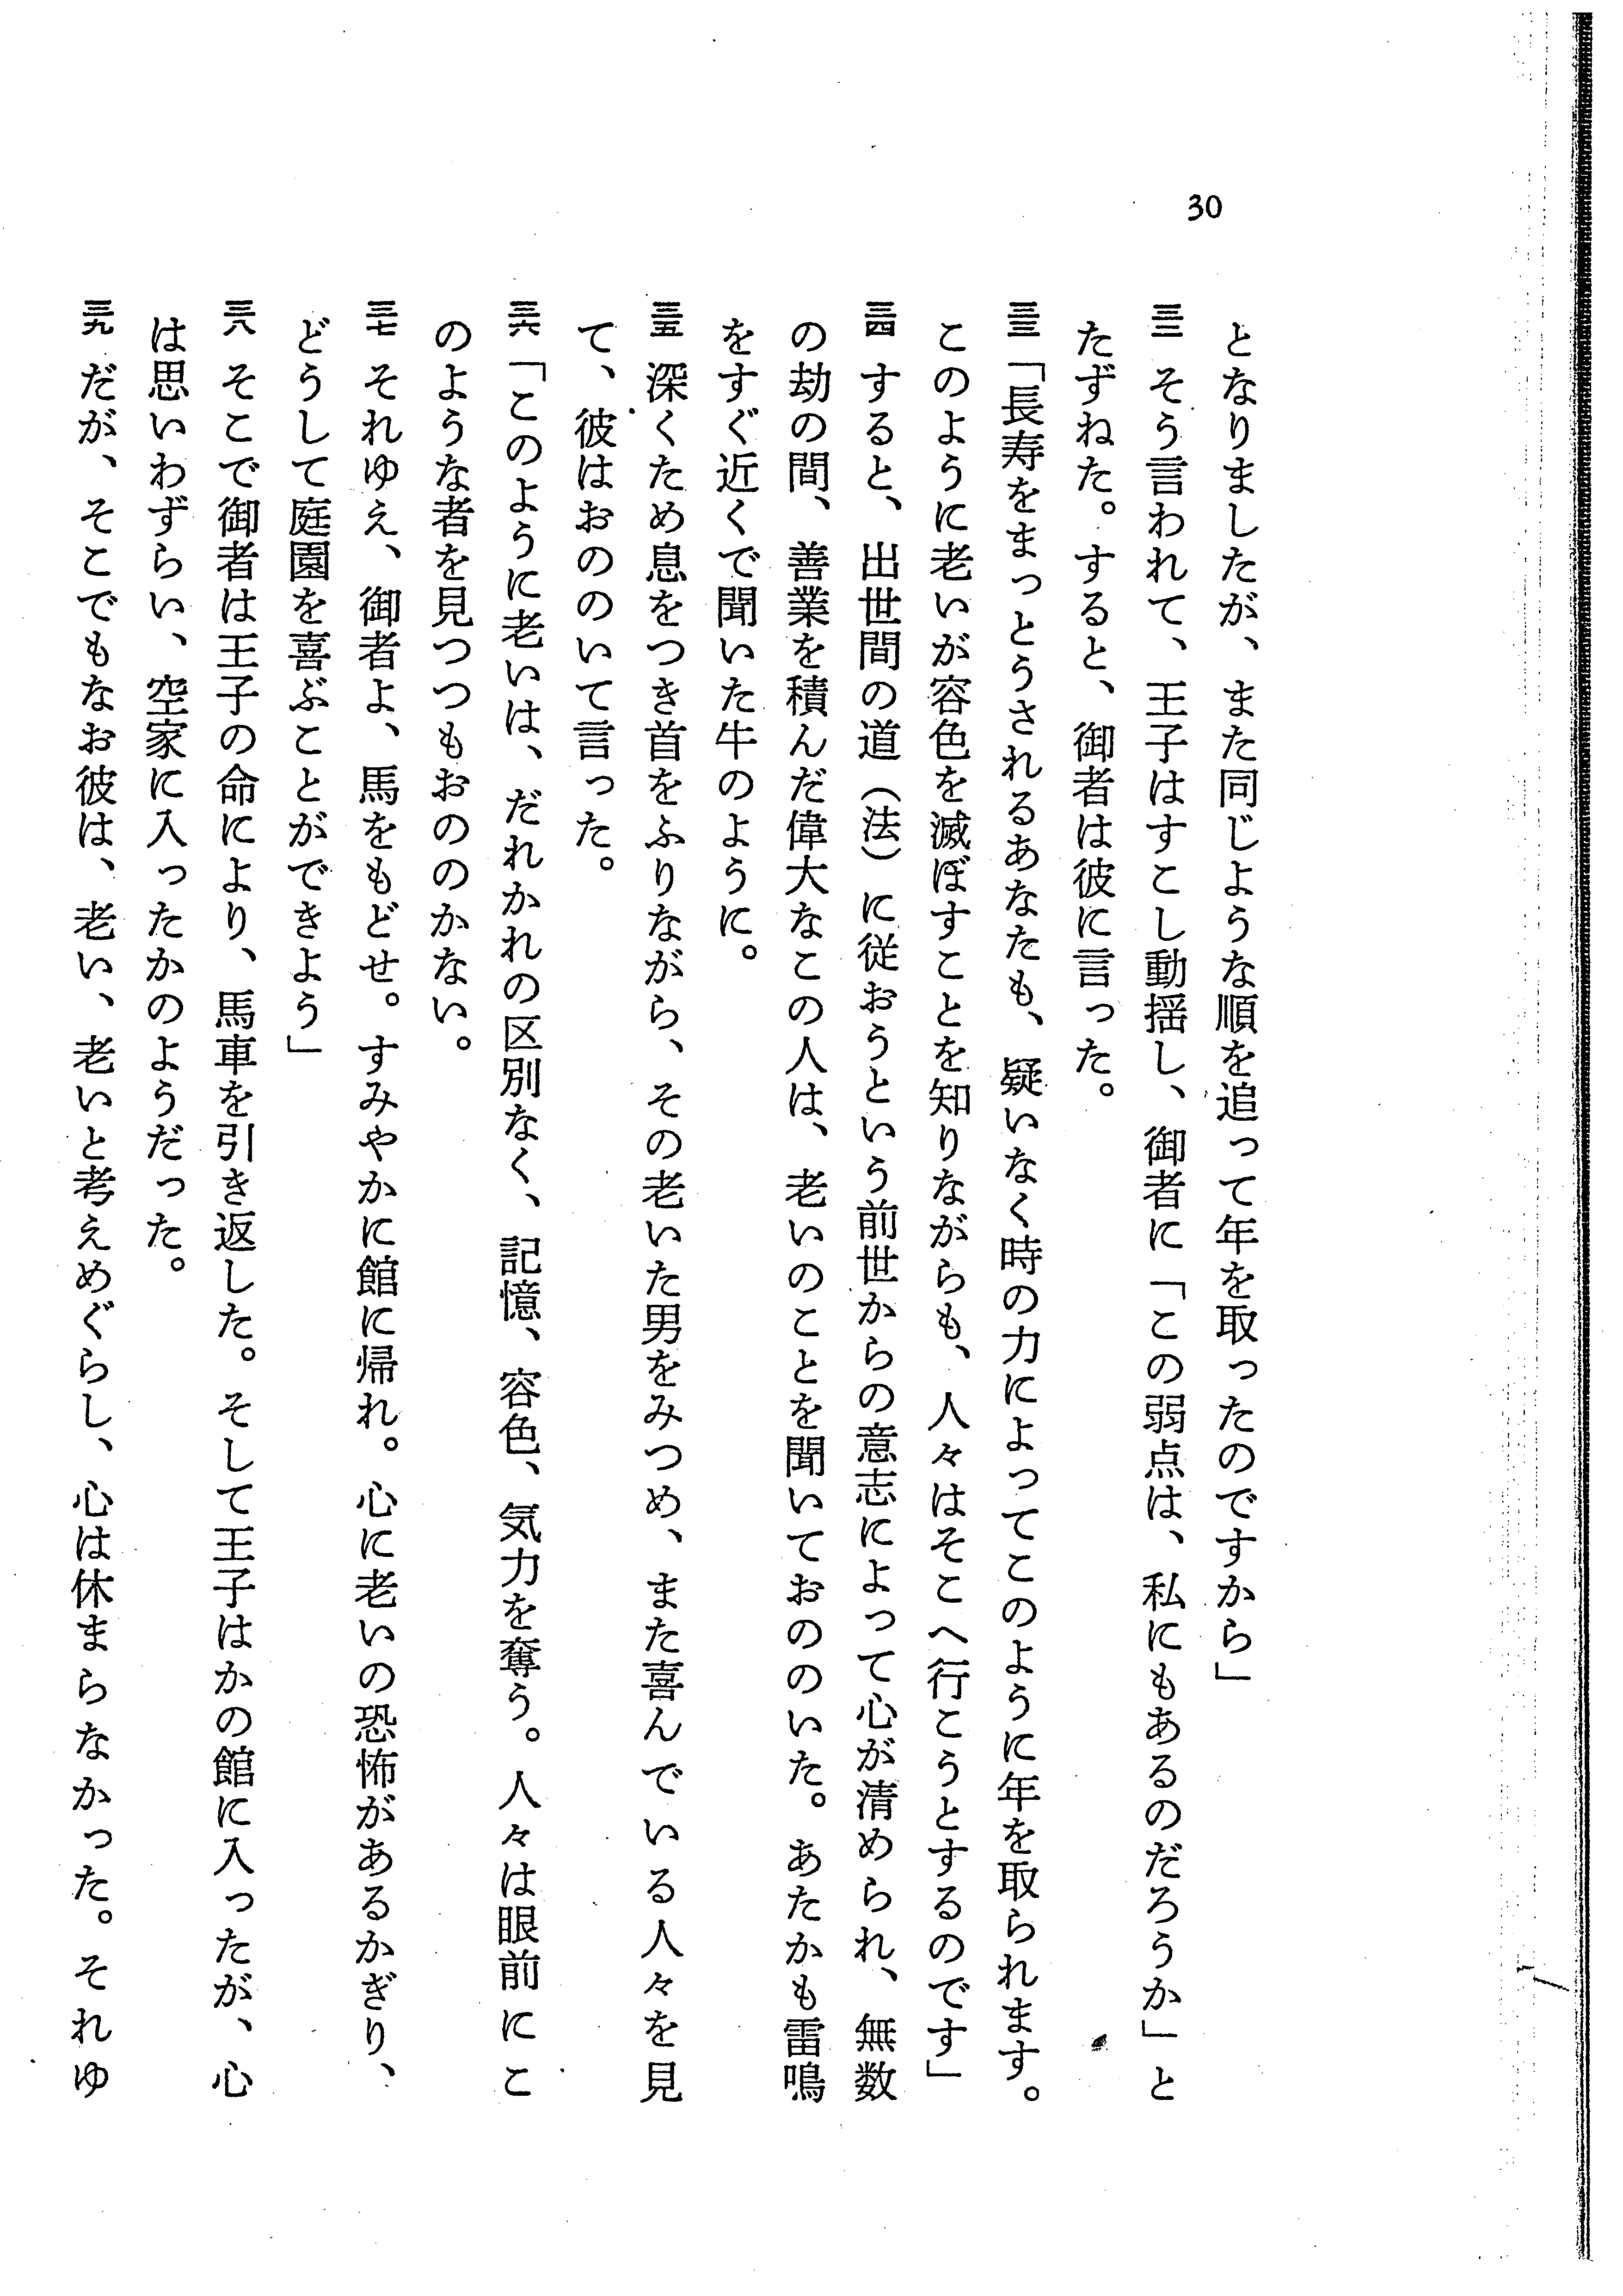 30
となりましたが、また同じような順を追って年を取ったのですから」
三二 そう言われて、王子はすこし動揺し、御者に「この弱点は、私にもあるのだろうか」と
たずねた。すると、御者は彼に言った。
三三 「長寿をまっとうされるあなたも、疑いなく時の力によってこのように年を取られます。
このように老いが容色を滅ぼすことを知りながらも、人々はそこへ行こうとするのです」
三四 すると、出世間の道（法）に従おうという前世からの意志によって心が清められ、無数
の劫の間、善業を積んだ偉大なこの人は、老いのことを聞いておののいた。あたかも雷鳴
をすぐ近くで聞いた牛のように。
三五 深くため息をつき首をふりながら、その老いた男をみつめ、また喜んでいる人々を見
て、彼はおののいて言った。
三六 「このように老いは、だれかれの区別なく、記憶、容色、気力を奪う。人々は眼前にこ
のような者を見つつもおののかない。
三七 それゆえ、御者よ、馬をもどせ。すみやかに館に帰れ。心に老いの恐怖があるかぎり、
どうして庭園を喜ぶことができよう」
三八 そこで御者は王子の命により、馬車を引き返した。そして王子はかの館に入ったが、心
は思いわずらい、空家に入ったかのようだった。
三九 だが、そこでもなお彼は、老い、老いと考えめぐらし、心は休まらなかった。それゆ